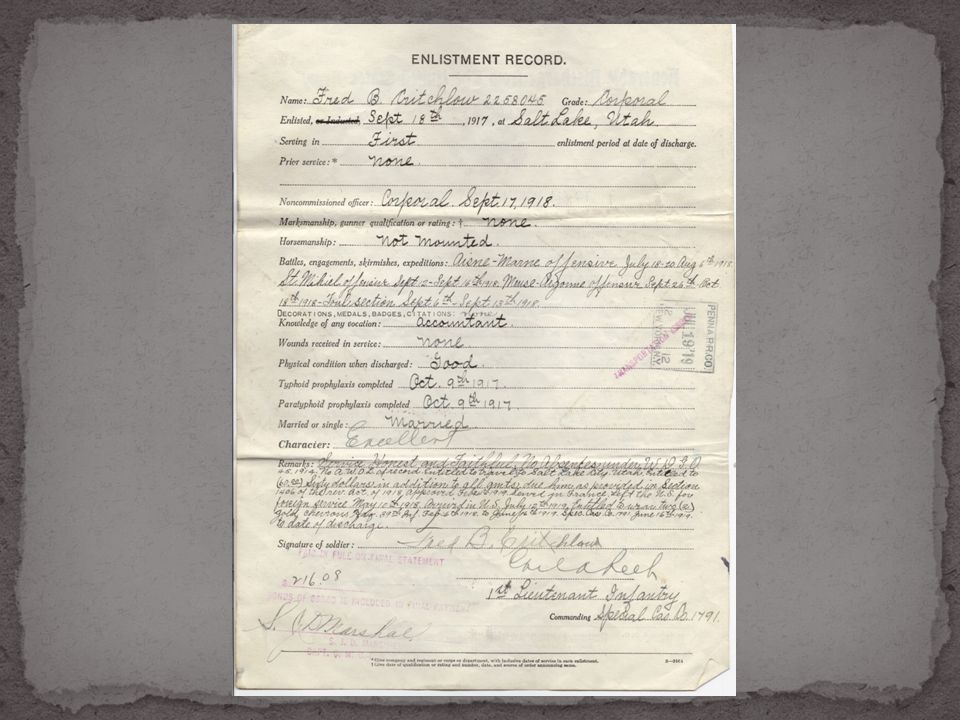 ENLISTMENT RECORD.
Name: Fred B Critchlow 2258045 Grade: Corporal
Enlisted, or Inducted, Sept 18th, 1917, at Salt Lake, Utah
Serving in First enlistment period at date of discharge.
Prior service: * None
Noncommissioned officer: Corporal Sept. 17, 1918.
Marksmanship, gunner qualification or rating: † None.
Horsemanship: Not mounted.
Battles, engagements, skirmishes, expeditions: Aisne-Marne offensive July 18 to Aug 6th 1918
St Mihiel offensive Sept. 12-Sept 16th 1918. Meuse-Argonne offensive Sept 26th Oct
18th 1918-Toul section Sept 6th-Sept 13th 1918
DECORATIONS, MEDALS, BADGES, CITATIONS: None
Knowledge of any vocation: Accountant.
Wounds received in service: None
Physical condition when discharged: Good.
Typhoid prophylaxis completed Oct. 9th 1917.
Paratyphoid prophylaxis completed Oct. 9th 1917.
Married or single: Married
Character: Excellent
Remarks: Service Honest and Faithful No Absences under W.D.G.O.
45. 1914. No A.W.O.L. of record Entitled to travel to Salt Lake City, Utah Entitled to
(60.00) Sixty dollars in addition to all amts. due him as provided in Section
1406 of the rev. Act. of 1918, Approved Feb. served in France Left the U.S. for
foreign service May 10th 1918. Arrived in U.S. July 1919. Entitled to wear two (2)
gold chevrons. June 16th 1919
to date of discharge.
Signature of soldier: Fred B. Critchlow
PAID IN FULL FINAL STATEMENT
216.08
BONUS OF $60.00 IS INCLUDED IN FINAL PAYMENT
1st Lieutenant Infantry
Commanding Special Cas. Co. 1791.
S. J. D. Marshall
* Give company and regiment or corps or department, with inclusive dates of service in each enlistment.
† Give date of qualification or rating and number, date, and source of order announcing same.
PENNA R.R. CO.
JUL 19 '19